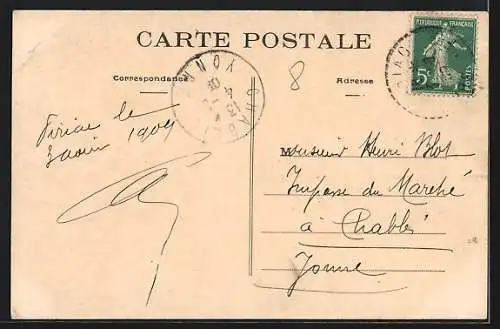 CARTE POSTALE
Correspondance
Adresse
8
REPUBLIQUE FRANÇAISE
5c
POSTES
le
1909
Monsieur Henri Blot
Impasse du Marché
à Chablis
Yonne
CHABLIS
YONNE